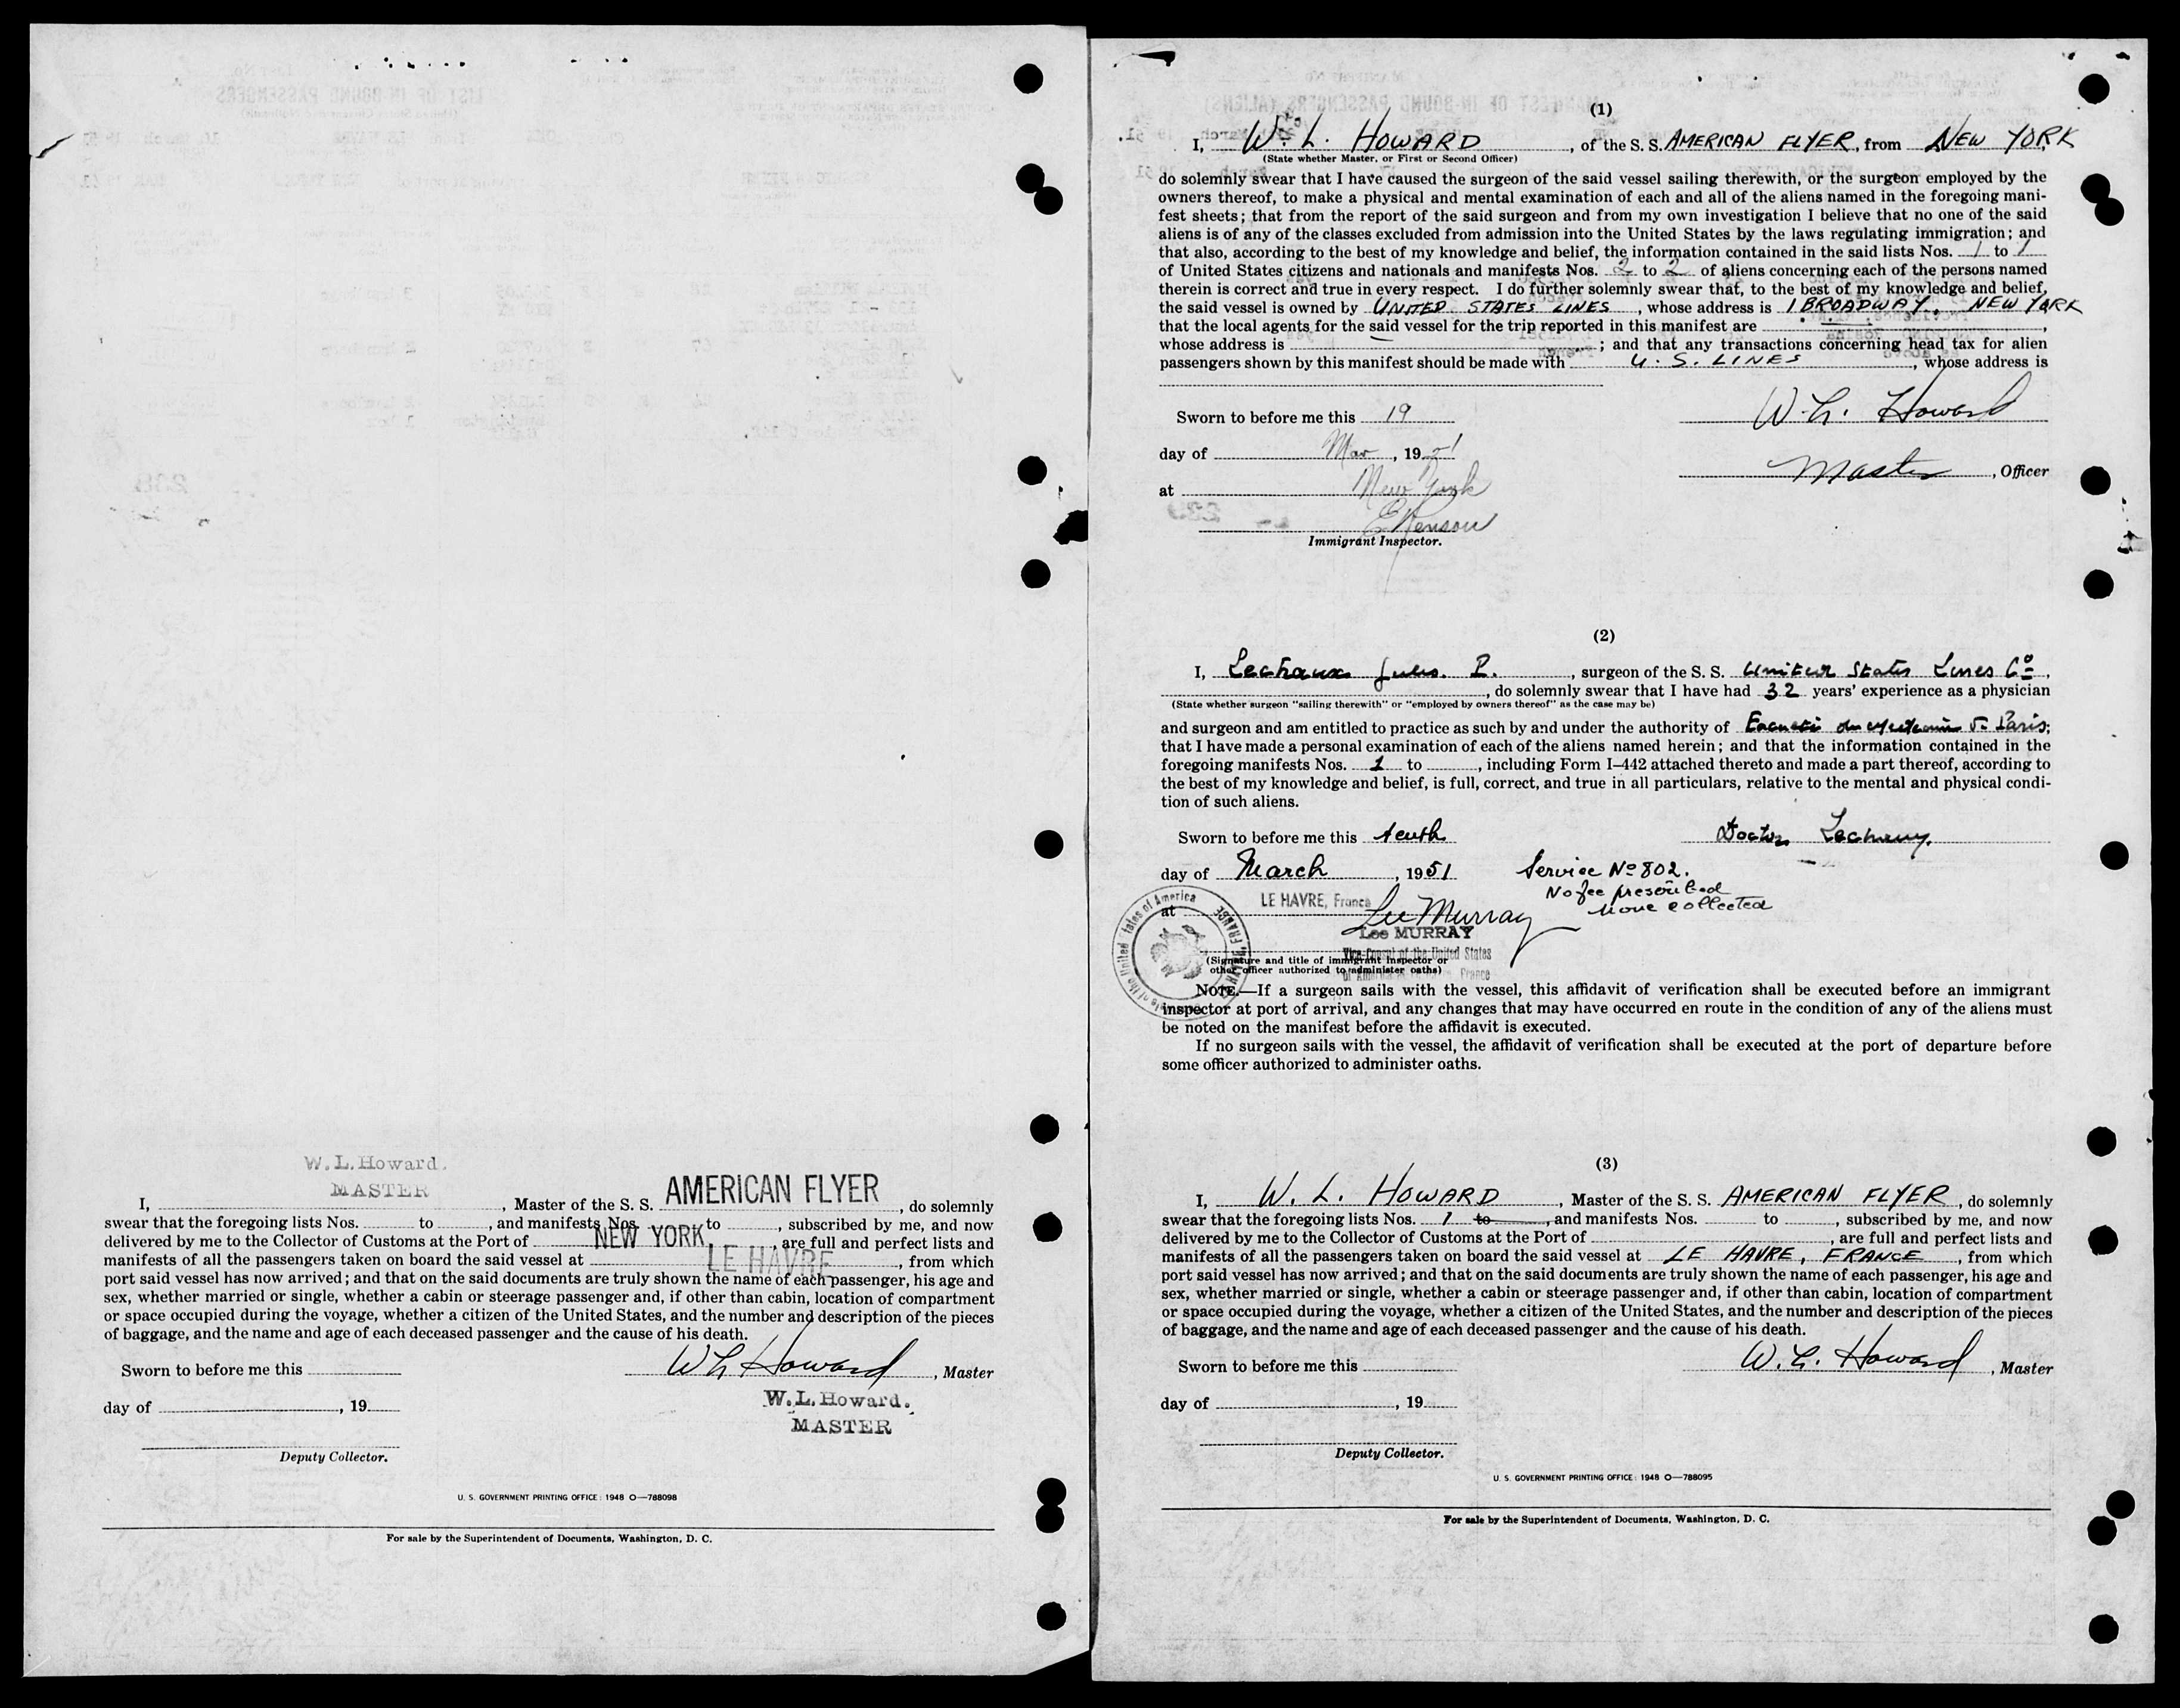 W. L. Howard.
MASTER
I, , Master of the S. S. AMERICAN FLYER , do solemnly
swear that the foregoing lists Nos. to , and manifests Nos. to , subscribed by me, and now
delivered by me to the Collector of Customs at the Port of NEW YORK. , are full and perfect lists and
manifests of all the passengers taken on board the said vessel at LE HAVRE , from which
port said vessel has now arrived; and that on the said documents are truly shown the name of each passenger, his age and
sex, whether married or single, whether a cabin or steerage passenger and, if other than cabin, location of compartment
or space occupied during the voyage, whether a citizen of the United States, and the number and description of the pieces
of baggage, and the name and age of each deceased passenger and the cause of his death.
Sworn to before me this
W L Howard , Master
W. L. Howard.
MASTER
day of , 19
Deputy Collector.
U. S. GOVERNMENT PRINTING OFFICE : 1948 O—788098
For sale by the Superintendent of Documents, Washington, D. C.
(1)
I, W. L. HOWARD , of the S. S. AMERICAN FLYER, from NEW YORK
(State whether Master, or First or Second Officer)
do solemnly swear that I have caused the surgeon of the said vessel sailing therewith, or the surgeon employed by the
owners thereof, to make a physical and mental examination of each and all of the aliens named in the foregoing mani-
fest sheets; that from the report of the said surgeon and from my own investigation I believe that no one of the said
aliens is of any of the classes excluded from admission into the United States by the laws regulating immigration; and
that also, according to the best of my knowledge and belief, the information contained in the said lists Nos. 1 to 1
of United States citizens and nationals and manifests Nos. 2 to 2 of aliens concerning each of the persons named
therein is correct and true in every respect. I do further solemnly swear that, to the best of my knowledge and belief,
the said vessel is owned by UNITED STATES LINES , whose address is 1 BROADWAY, NEW YORK
that the local agents for the said vessel for the trip reported in this manifest are ,
whose address is ; and that any transactions concerning head tax for alien
passengers shown by this manifest should be made with U. S. LINES , whose address is
Sworn to before me this 19
W. L. Howard
day of Mar , 1951
Master , Officer
at New York
Immigrant Inspector.
(2)
I, Lechaux Jules. P. , surgeon of the S. S. United States Lines Co ,
, do solemnly swear that I have had 32 years' experience as a physician
(State whether surgeon "sailing therewith" or "employed by owners thereof" as the case may be)
and surgeon and am entitled to practice as such by and under the authority of Paris;
that I have made a personal examination of each of the aliens named herein; and that the information contained in the
foregoing manifests Nos. 1 to , including Form I–442 attached thereto and made a part thereof, according to
the best of my knowledge and belief, is full, correct, and true in all particulars, relative to the mental and physical condi-
tion of such aliens.
Sworn to before me this tenth
Doctor
day of March , 1951
Service No 802.
No fee prescribed
None collected
at LE HAVRE, France
Lee Murray
Lee MURRAY
Vice-Consul of the United States
(Signature and title of immigrant inspector or
other officer authorized to administer oaths)
NOTE.—If a surgeon sails with the vessel, this affidavit of verification shall be executed before an immigrant
inspector at port of arrival, and any changes that may have occurred en route in the condition of any of the aliens must
be noted on the manifest before the affidavit is executed.
If no surgeon sails with the vessel, the affidavit of verification shall be executed at the port of departure before
some officer authorized to administer oaths.
(3)
I, W. L. HOWARD , Master of the S. S. AMERICAN FLYER , do solemnly
swear that the foregoing lists Nos. 1 to , and manifests Nos. to , subscribed by me, and now
delivered by me to the Collector of Customs at the Port of , are full and perfect lists and
manifests of all the passengers taken on board the said vessel at LE HAVRE, FRANCE , from which
port said vessel has now arrived; and that on the said documents are truly shown the name of each passenger, his age and
sex, whether married or single, whether a cabin or steerage passenger and, if other than cabin, location of compartment
or space occupied during the voyage, whether a citizen of the United States, and the number and description of the pieces
of baggage, and the name and age of each deceased passenger and the cause of his death.
Sworn to before me this
W. L. Howard , Master
day of , 19
Deputy Collector.
U. S. GOVERNMENT PRINTING OFFICE : 1948 O—788095
For sale by the Superintendent of Documents, Washington, D. C.